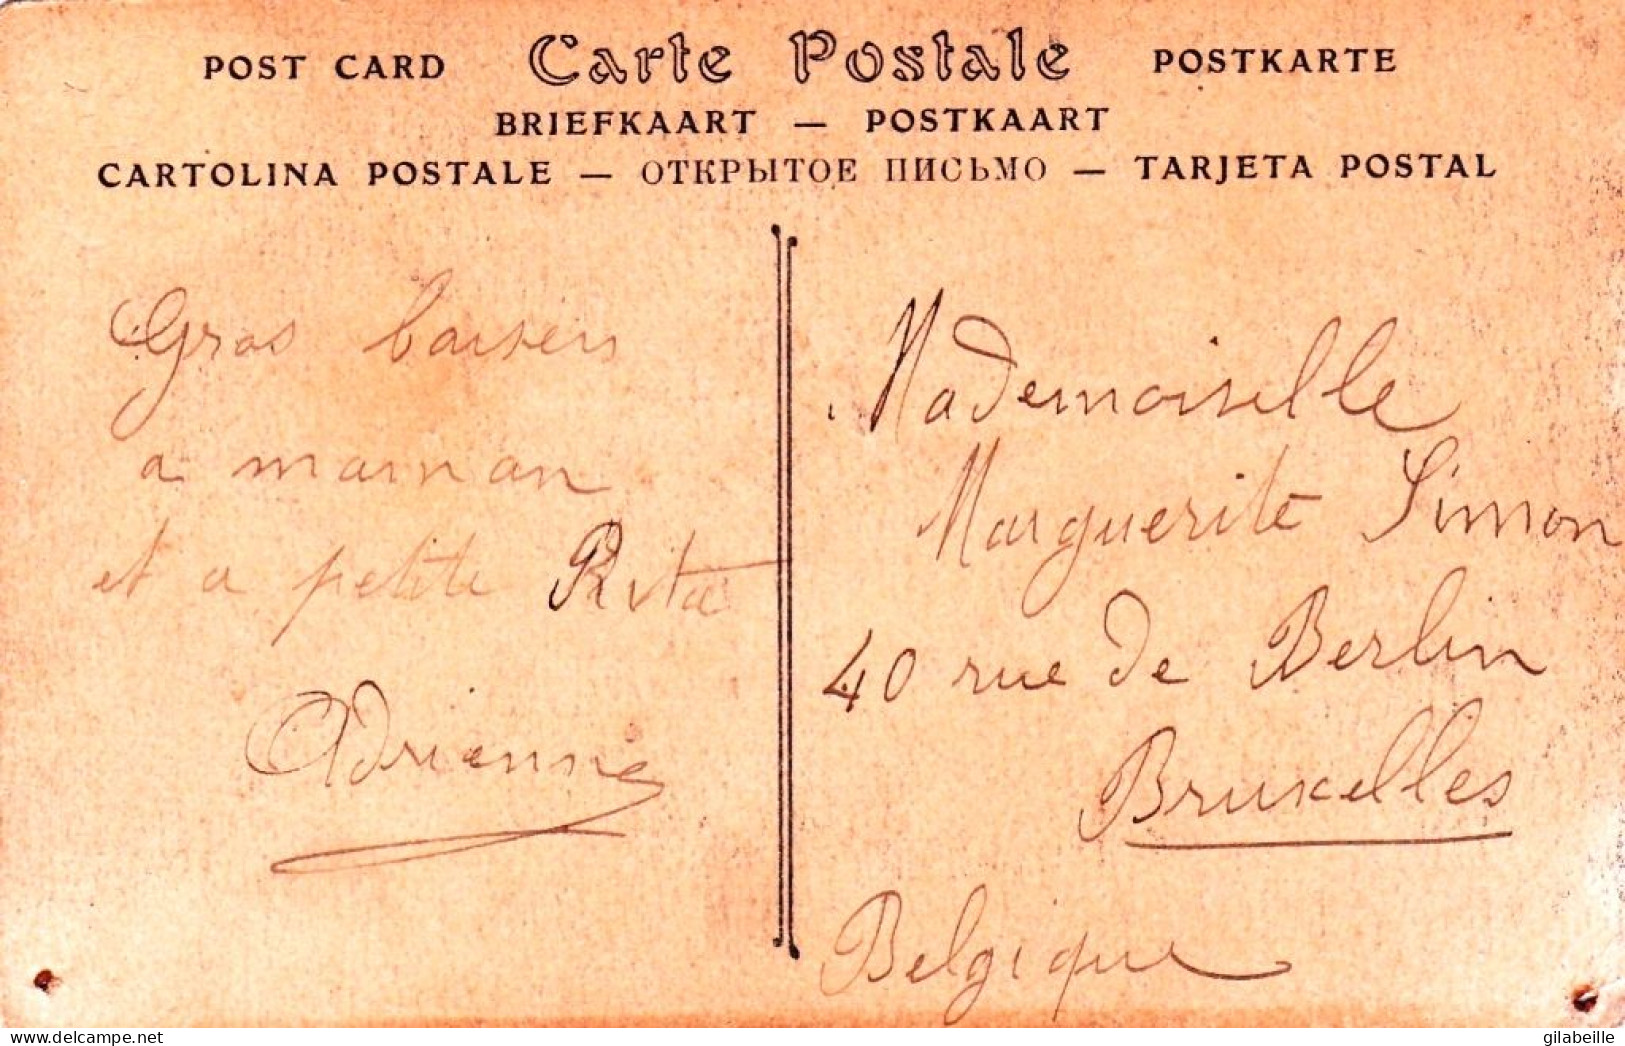 POST CARD Carte Postale POSTKARTE
BRIEFKAART — POSTKAART
CARTOLINA POSTALE — ОТКРЫТОЕ ПИСЬМО — TARJETA POSTAL
Gros baisers
a maman
et a petite Rita
Adrienne
Mademoiselle
Marguerite Simon
40 rue de Berlin
Bruxelles
Belgique
www.delcampe.net
gilabeille